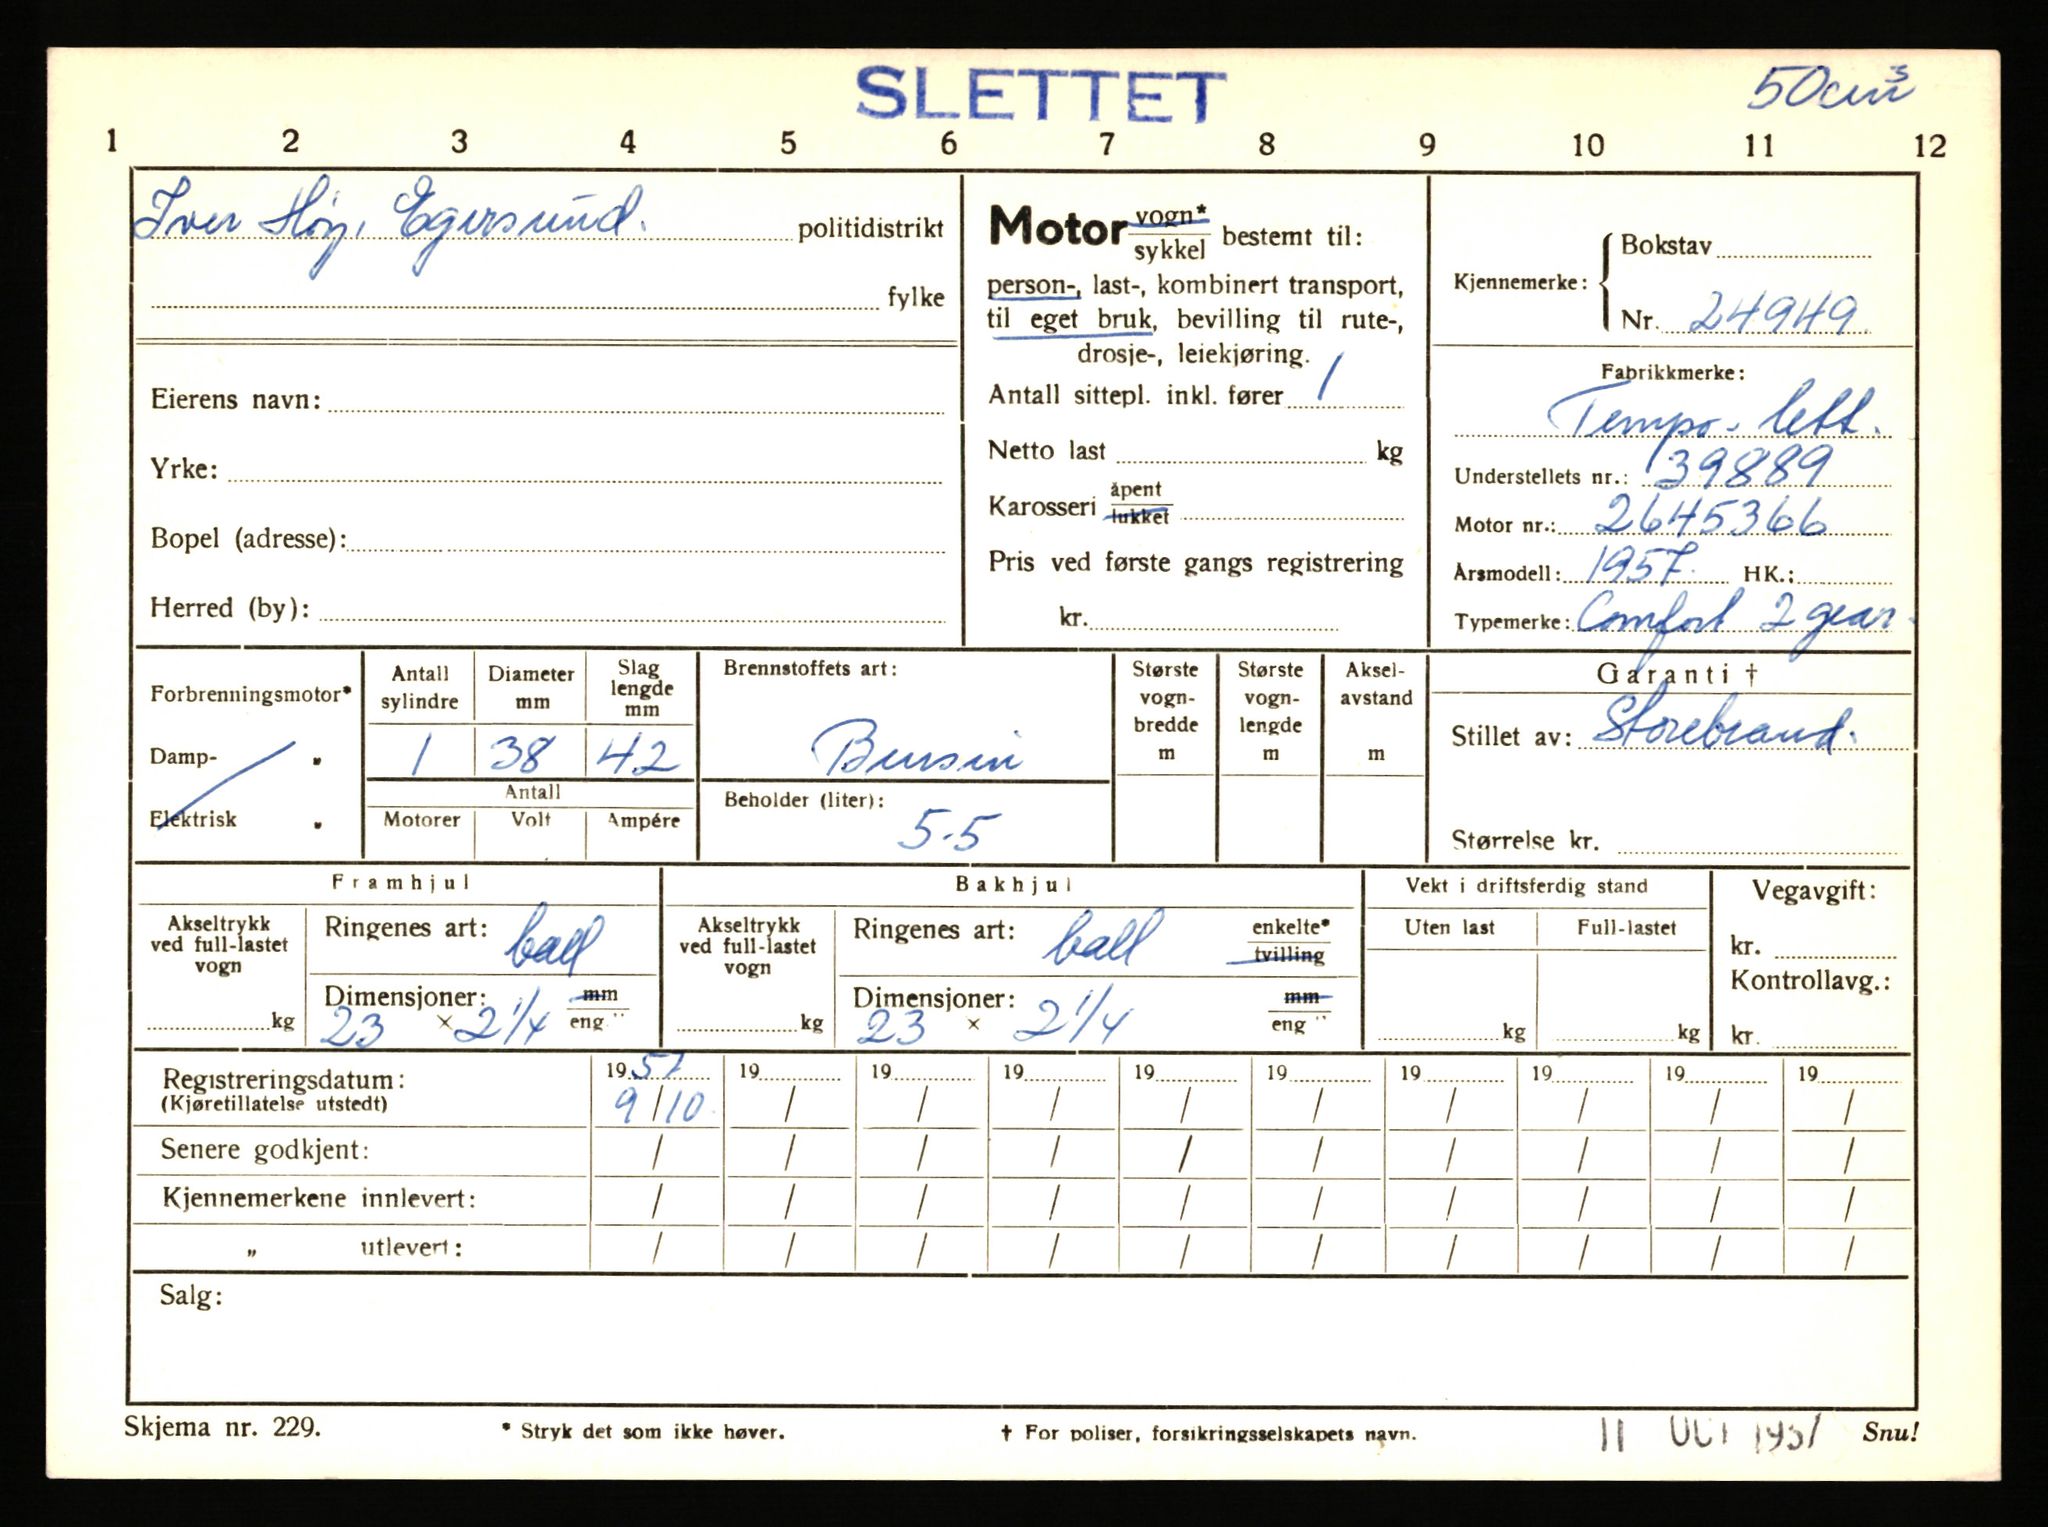 SLETTET
50cm³
1 2 3 4 5 6 7 8 9 10 11 12
Iver Høy, Egersund. politidistrikt
fylke
Eierens navn:
Yrke:
Bopel (adresse):
Herred (by):
Motor vogn*
sykkel bestemt til:
person-, last-, kombinert transport,
til eget bruk, bevilling til rute-,
drosje-, leiekjøring.
Antall sittepl. inkl. fører 1
Netto last kg
Karosseri åpent
lukket
Pris ved første gangs registrering
kr.
Kjennemerke: Bokstav
Nr. 24949.
Fabrikkmerke:
Tempo-lett.
Understellets nr.: 139889
Motor nr.: 2645366
Årsmodell: 1957. HK.:
Typemerke: Comfort 2 gear.
Forbrenningsmotor*
Damp- „
Elektrisk „
Antall sylindre
Diameter mm
Slag lengde mm
1 38 42
Antall
Motorer Volt Ampére
Brennstoffets art:
Bensin
Beholder (liter):
5.5
Største vogn-bredde m
Største vogn-lengde m
Aksel-avstand m
Garanti †
Stillet av: Storebrand.
Størrelse kr.
Framhjul
Akseltrykk ved full-lastet vogn
kg
Ringenes art: ball
Dimensjoner: mm
23 × 2 1/4 eng "
Bakhjul
Akseltrykk ved full-lastet vogn
kg
Ringenes art: ball enkelte*
tvilling
Dimensjoner: mm
23 × 2 1/4 eng "
Vekt i driftsferdig stand
Uten last Full-lastet
kg kg
Vegavgift:
kr.
Kontrollavg.:
kr.
Registreringsdatum: 1957 19 19 19 19 19 19 19 19 19
(Kjøretillatelse utstedt) 9/10. / / / / / / / / /
Senere godkjent: / / / / / / / / / /
Kjennemerkene innlevert: / / / / / / / / / /
„ utlevert: / / / / / / / / / /
Salg:
Skjema nr. 229.
* Stryk det som ikke høver.
† For poliser, forsikringsselskapets navn.
11 OCT 1957
Snu!